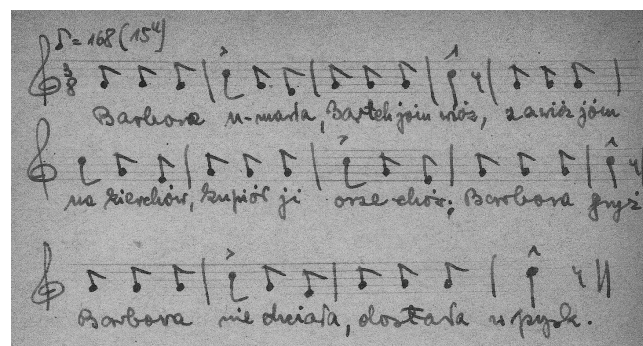 ♪=168 (15")
3/8
Barbora u-marła, Bartek join wióz, zawióz jóm
na kierchów, kupióf ji orze chów; Barbora gryź
Barbora nie chciała, dostała w pysk.